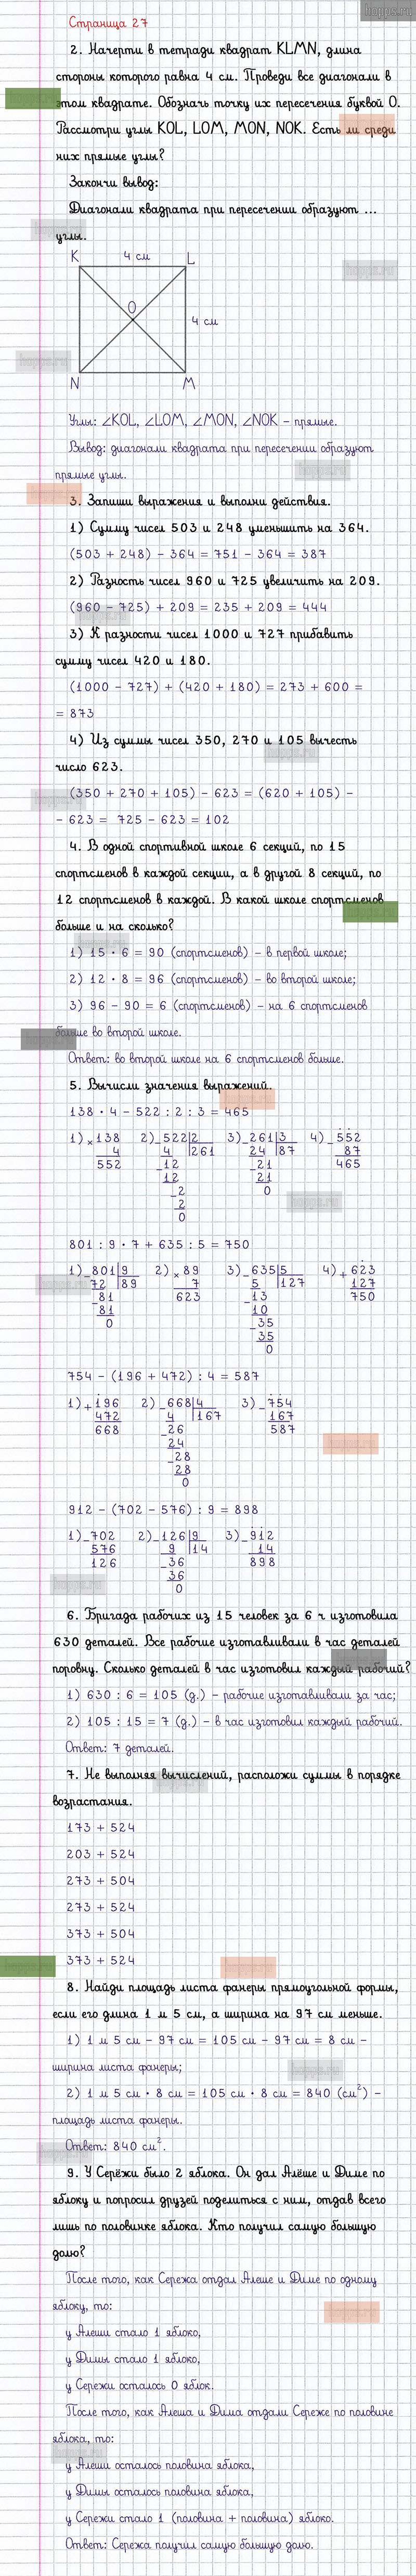 Страница 27
2. Начерти в тетради квадрат KLMN, длина
стороны которого равна 4 см. Проведи все диагонали в
этом квадрате. Обозначь точку их пересечения буквой О.
Рассмотри углы KOL, LOM, MON, NOK. Есть ли среди
них прямые углы?
Закончи вывод:
Диагонали квадрата при пересечении образуют ...
углы.
K 4 см L
O
4 см
N M
Углы: ∠KOL, ∠LOM, ∠MON, ∠NOK – прямые.
Вывод: диагонали квадрата при пересечении образуют
прямые углы.
3. Запиши выражения и выполни действия.
1) Сумму чисел 503 и 248 уменьшить на 364.
(503 + 248) – 364 = 751 – 364 = 387
2) Разность чисел 960 и 725 увеличить на 209.
(960 – 725) + 209 = 235 + 209 = 444
3) К разности чисел 1000 и 727 прибавить
сумму чисел 420 и 180.
(1000 – 727) + (420 + 180) = 273 + 600 =
= 873
4) Из суммы чисел 350, 270 и 105 вычесть
число 623.
(350 + 270 + 105) – 623 = (620 + 105) –
– 623 = 725 – 623 = 102
4. В одной спортивной школе 6 секций, по 15
спортсменов в каждой секции, а в другой 8 секций, по
12 спортсменов в каждой. В какой школе спортсменов
больше и на сколько?
1) 15 · 6 = 90 (спортсменов) – в первой школе;
2) 12 · 8 = 96 (спортсменов) – во второй школе;
3) 96 – 90 = 6 (спортсменов) – на 6 спортсменов
больше во второй школе.
Ответ: во второй школе на 6 спортсменов больше.
5. Вычисли значения выражений.
138 · 4 – 522 : 2 : 3 = 465
1) × 138 2) – 522 | 2 3) – 261 | 3 4) – 552
4 4 261 24 87 87
552 – 12 – 21 465
12 21
– 2 0
2
0
801 : 9 · 7 + 635 : 5 = 750
1) – 801 | 9 2) × 89 3) – 635 | 5 4) + 623
72 89 7 5 127 127
– 81 623 – 13 750
81 10
0 – 35
35
0
754 – (196 + 472) : 4 = 587
1) + 196 2) – 668 | 4 3) – 754
472 4 167 167
668 – 26 587
24
– 28
28
0
912 – (702 – 576) : 9 = 898
1) – 702 2) – 126 | 9 3) – 912
576 9 14 14
126 – 36 898
36
0
6. Бригада рабочих из 15 человек за 6 ч изготовила
630 деталей. Все рабочие изготавливали в час деталей
поровну. Сколько деталей в час изготовил каждый рабочий?
1) 630 : 6 = 105 (д.) – рабочие изготавливали за час;
2) 105 : 15 = 7 (д.) – в час изготовил каждый рабочий.
Ответ: 7 деталей.
7. Не выполняя вычислений, расположи суммы в порядке
возрастания.
173 + 524
203 + 524
273 + 504
273 + 524
373 + 504
373 + 524
8. Найди площадь листа фанеры прямоугольной формы,
если его длина 1 м 5 см, а ширина на 97 см меньше.
1) 1 м 5 см – 97 см = 105 см – 97 см = 8 см –
ширина листа фанеры;
2) 1 м 5 см · 8 см = 105 см · 8 см = 840 (см²) –
площадь листа фанеры.
Ответ: 840 см².
9. У Серёжи было 2 яблока. Он дал Алёше и Диме по
яблоку и попросил друзей поделиться с ним, отдав всего
лишь по половинке яблока. Кто получил самую большую
долю?
После того, как Сережа отдал Алеше и Диме по одному
яблоку, то:
у Алеши стало 1 яблоко,
у Димы стало 1 яблоко,
у Сережи осталось 0 яблок.
После того, как Алеша и Дима отдали Сереже по половине
яблока, то:
у Алеши осталось половина яблока,
у Димы осталось половина яблока,
у Сережи стало 1 (половина + половина) яблоко.
Ответ: Сережа получил самую большую долю.